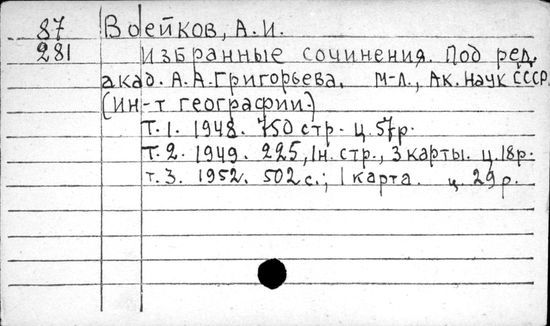 87 Воейков, А.И.
281 Избранные сочинения. Под ред.
акад. А.А.Григорьева. М-Л., Ак. наук СССР
(Ин-т географии.)
Т.1. 1948. 750 стр. ц. 57р.
Т.2. 1949. 225, 1н. стр., 3 карты. ц. 18р.
т.3. 1952. 502 с.; 1 карта. ц. 29р.